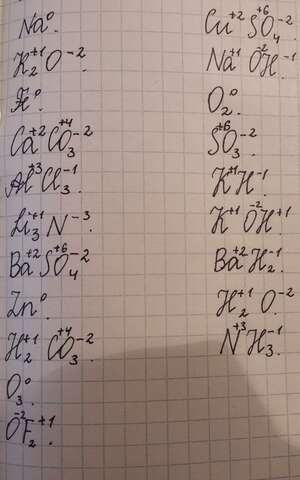 Na⁰.
H₂⁺¹O⁻².
H⁰.
Ca⁺²C⁺⁴O₃⁻².
Al⁺³Cl₃⁻¹.
Li₃⁺¹N⁻³.
Ba⁺²S⁺⁶O₄⁻².
Zn⁰.
H₂⁺¹C⁺⁴O₃⁻².
O₃⁰.
O⁻²F₂⁺¹.
Cu⁺²S⁺⁶O₄⁻².
Na⁺¹O⁻²H⁻¹.
O₂⁰.
S⁺⁶O₃⁻².
K⁺¹H⁻¹.
K⁺¹O⁻²H⁺¹.
Ba⁺²H₂⁻¹.
H₂⁺¹O⁻².
N⁺³H₃⁻¹.